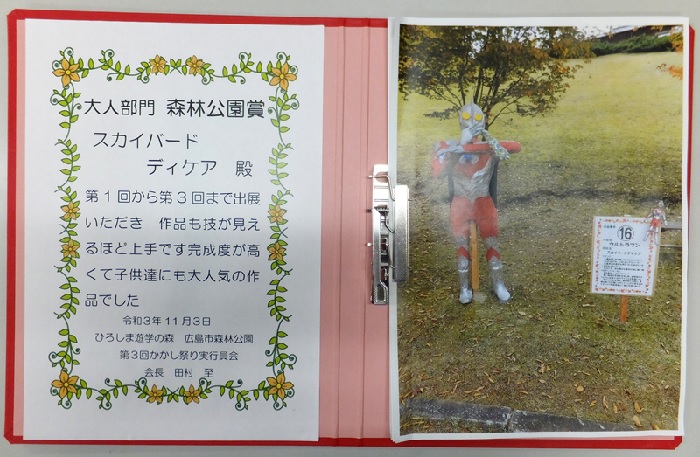 大人部門 森林公園賞
スカイバード
ディケア 殿
第1回から第3回まで出展
いただき 作品も技が見え
るほど上手です完成度が高
くて子供達にも大人気の作
品でした
令和3年11月3日
ひろしま遊学の森 広島市森林公園
第3回かかし祭り実行員会
会長 田村 至
16
ウルトラマン